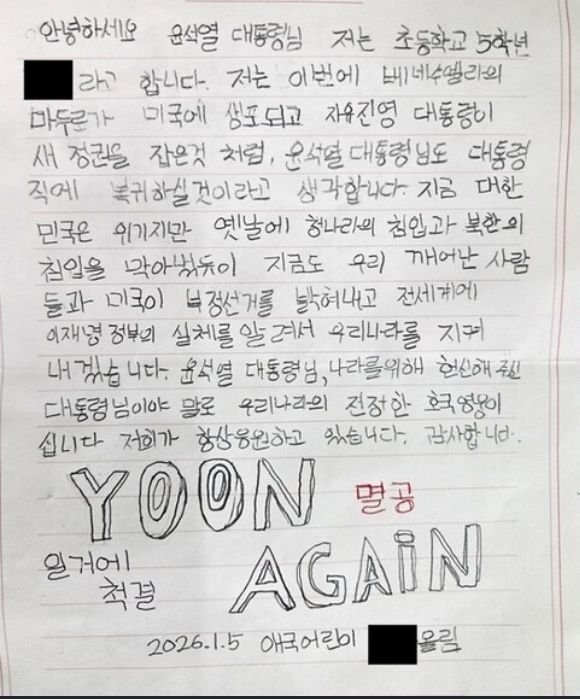 안녕하세요 윤석열 대통령님 저는 초등학교 5학년
라고 합니다. 저는 이번에 베네수엘라의
마두로가 미국에 생포되고 자유진영 대통령이
새 정권을 잡은것 처럼, 윤석열 대통령님도 대통령
직에 복귀하실 것이라고 생각합니다. 지금 대한
민국은 위기지만 옛날에 청나라의 침입과 북한의
침입을 막아냈듯이 지금도 우리 깨어난 사람
들과 미국이 부정선거를 밝혀내고 전세계에
이재명 정부의 실체를 알려서 우리나라를 지켜
내겠습니다. 윤석열 대통령님, 나라를위해 헌신해 주신
대통령님이야 말로 우리나라의 진정한 호국영웅이
십니다 저희가 항상응원하고 있습니다. 감사합니다.
YOON 멸공
일거에 AGAiN
척결
2026.1.5 애국어린이 올림